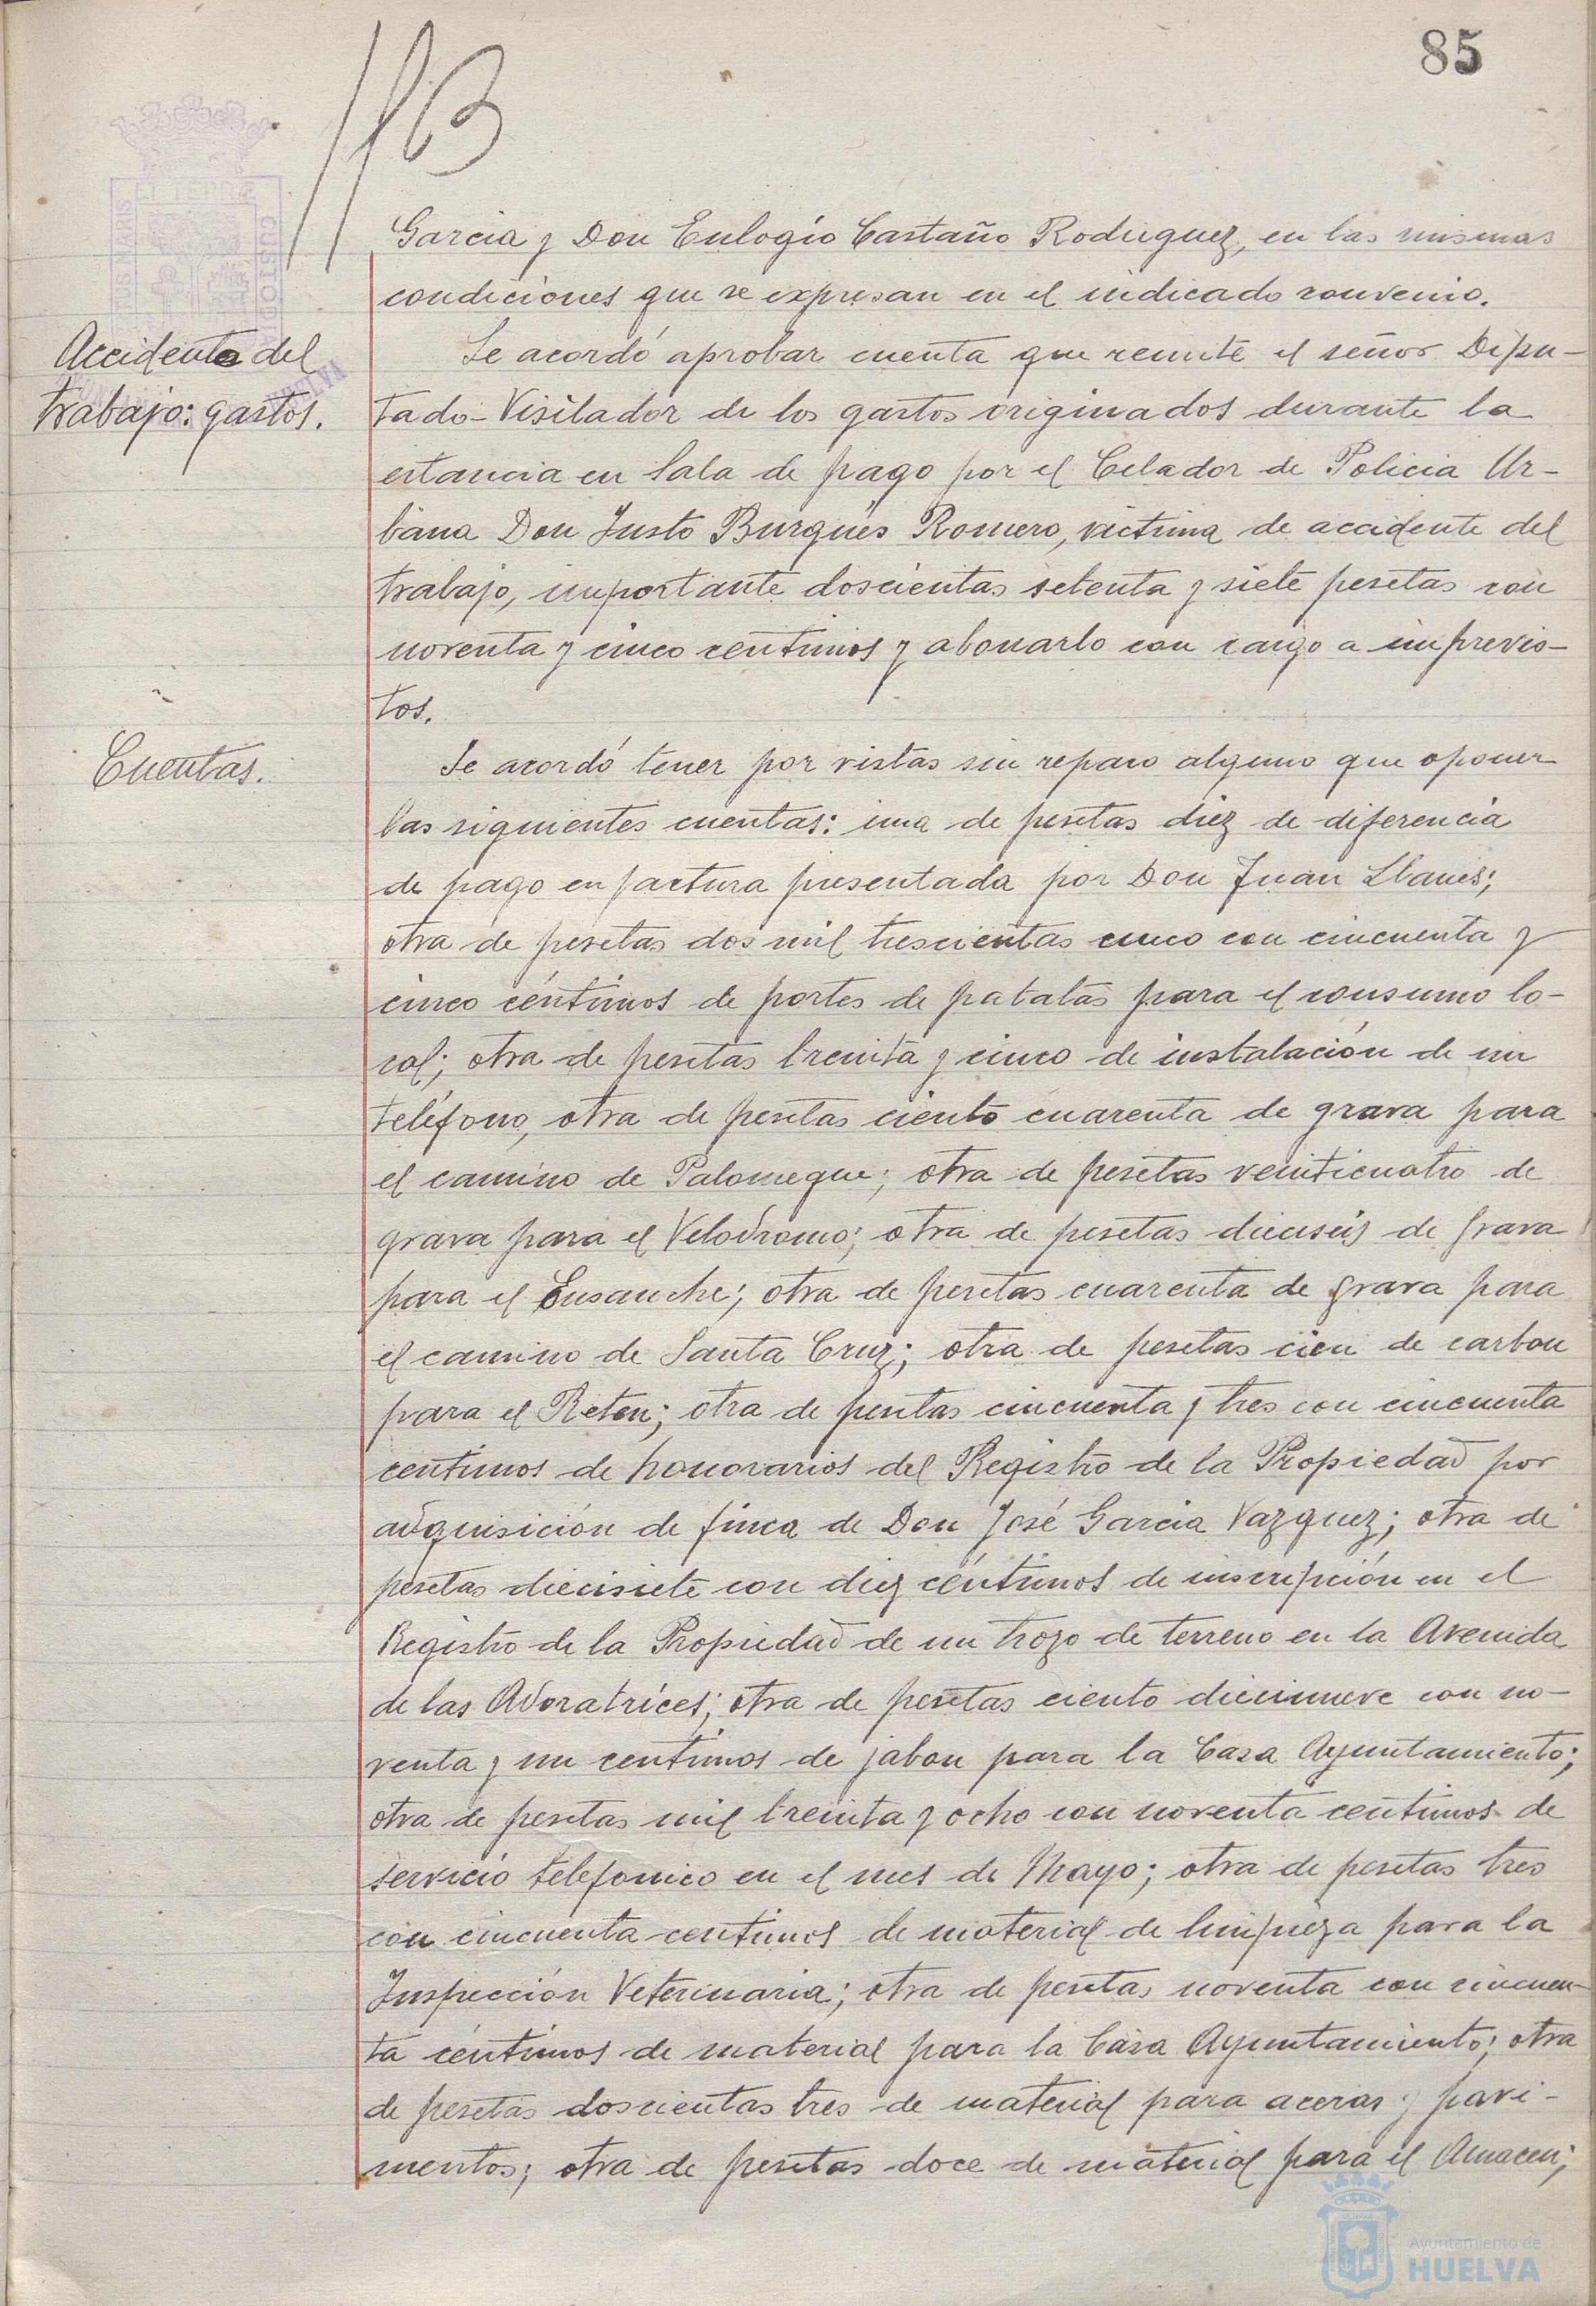 85
Garcia y Don Eulogio Castaño Rodriguez, en las mismas
condiciones que se expresan en el indicado convenio.
Accidente del
trabajo: gastos.
Se acordó aprobar cuenta que remite el señor Dipu-
tado-Visitador de los gastos originados durante la
estancia en Sala de pago por el Celador de Policia Ur-
bana Don Justo Burgues Romero, victima de accidente del
trabajo, importante doscientas setenta y siete pesetas con
noventa y cinco centimos y abonarlo con cargo a imprevis-
tos.
Cuentas.
Se acordó tener por vistas sin reparo alguno que oponer
las siguientes cuentas: una de pesetas diez de diferencia
de pago en factura presentada por Don Juan Llanes;
otra de pesetas dos mil trescientas cinco con cincuenta y
cinco céntimos de portes de patatas para el consumo lo-
cal; otra de pesetas treinta y cinco de instalación de un
teléfono, otra de pesetas ciento cuarenta de grava para
el camino de Palomeque; otra de pesetas veinticuatro de
grava para el Velodromo; otra de pesetas dieciseis de grava
para el Ensanche; otra de pesetas cuarenta de grava para
el camino de Santa Cruz; otra de pesetas cien de carbon
para el Reten; otra de pesetas cincuenta y tres con cincuenta
centimos de honorarios del Registro de la Propiedad por
adquisición de finca de Don José Garcia Vazquez; otra de
pesetas diecisiete con diez céntimos de inscripción en el
Registro de la Propiedad de un trozo de terreno en la Avenida
de las Adoratrices; otra de pesetas ciento diecinueve con no-
venta y un centimos de jabon para la Casa Ayuntamiento;
otra de pesetas mil treinta y ocho con noventa centimos de
servicio telefonico en el mes de Mayo; otra de pesetas tres
con cincuenta centimos de material de limpieza para la
Inspección Veterinaria; otra de pesetas noventa con cincuen-
ta céntimos de material para la Casa Ayuntamiento; otra
de pesetas doscientas tres de material para aceras y pavi-
mentos; otra de pesetas doce de material para el Almacen;
Ayuntamiento de
HUELVA